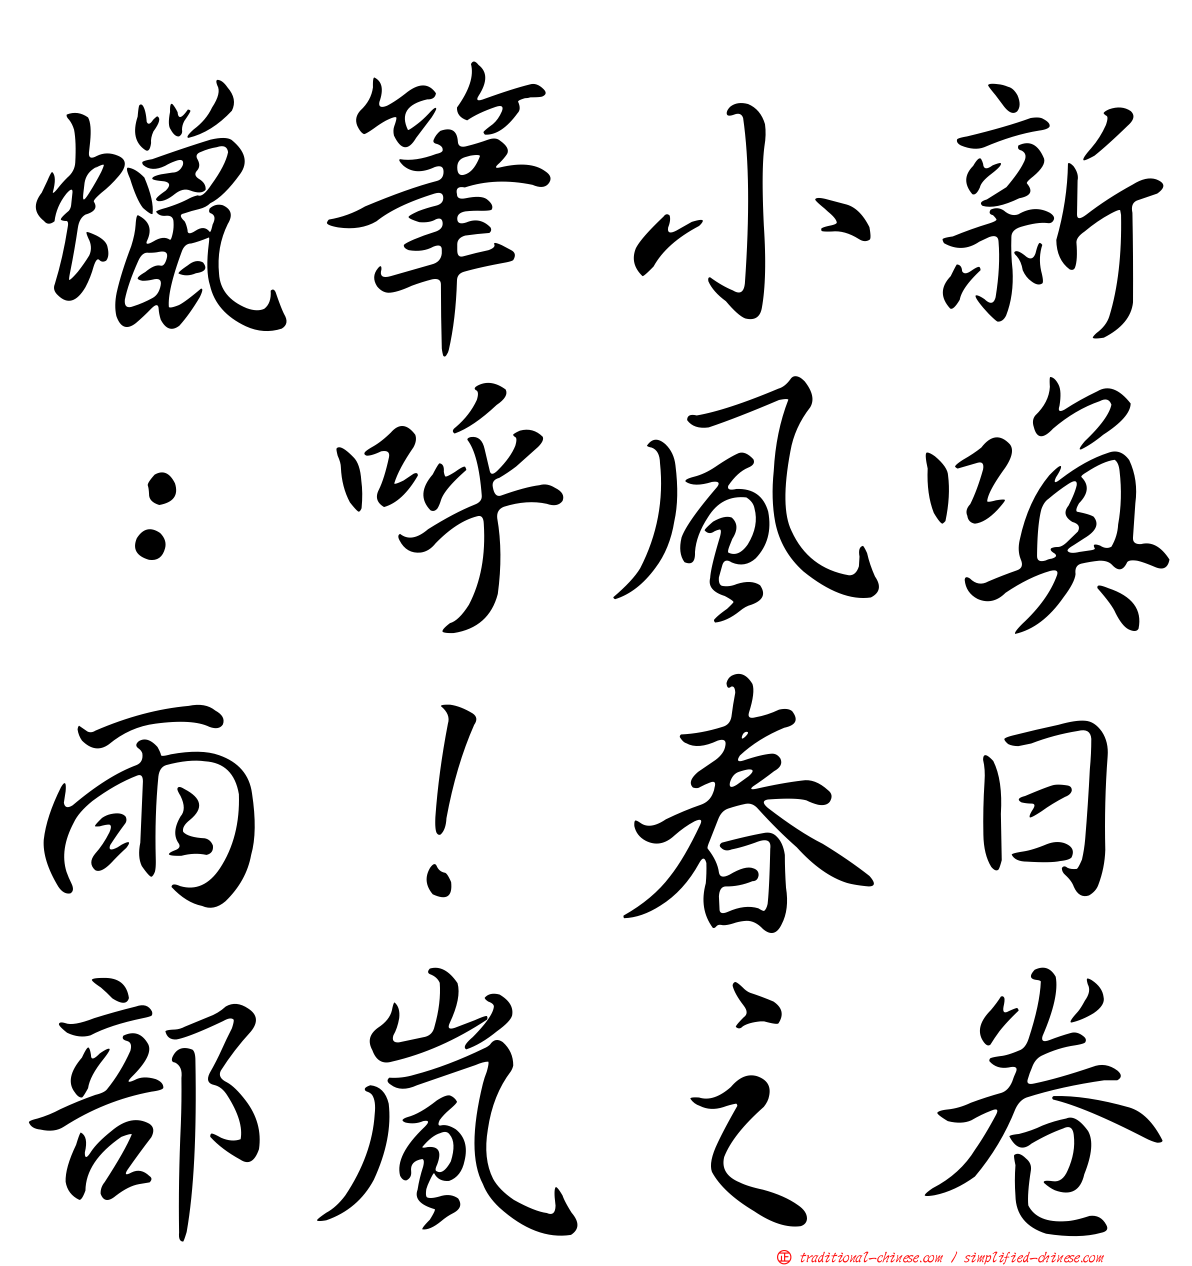 蠟筆小新
：呼風喚
雨！春日
部嵐之卷
正 traditional-chinese.com / simplified-chinese.com